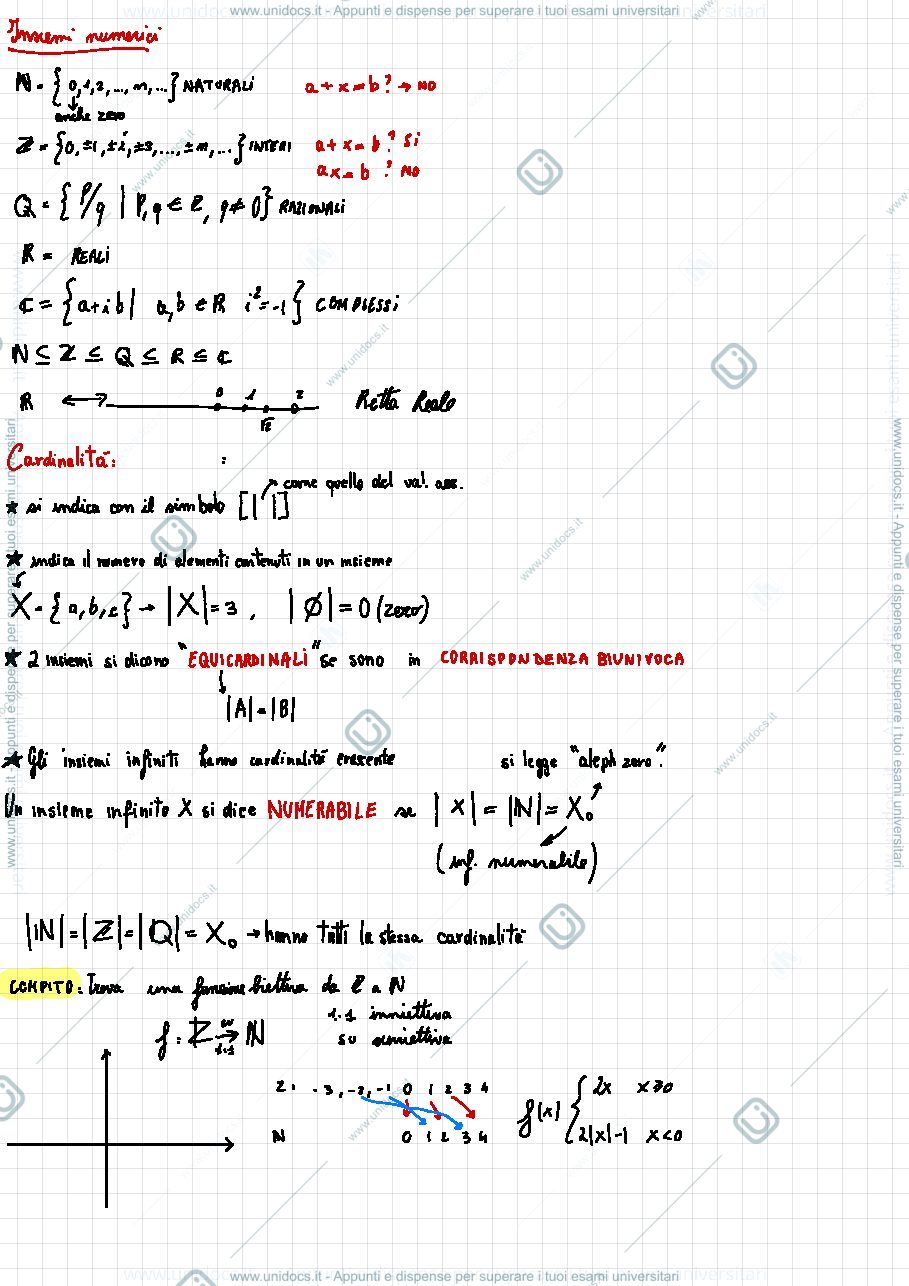 www.unidocs.it - Appunti e dispense per superare i tuoi esami universitari
Insiemi numerici
N = { 0,1,2, ..., n, ...} NATURALI a + x = b ? → NO
anche zero
Z = {0, ±1, ±2, ±3, ..., ±n, ...} INTERI a + x = b ? Si
ax = b ? NO
Q = { P/q | P,q ∈ Z, q ≠ 0} RAZIONALI
R = REALI
C = {a+ib | a,b ∈ R i² = -1} COMPLESSI
N ⊆ Z ⊆ Q ⊆ R ⊆ C
R ←→ 0 1 √2 2 Retta Reale
Cardinalità: :
come quello del val. ass.
★ si indica con il simbolo [| |]
★ indica il numero di elementi contenuti in un insieme
X = { a,b,c} → |X| = 3 , |Ø| = 0 (zero)
★ 2 insiemi si dicono "EQUICARDINALI" se sono in CORRISPONDENZA BIUNIVOCA
|A| = |B|
★ Gli insiemi infiniti hanno cardinalità crescente si legge "aleph zero".
Un insieme infinito X si dice NUMERABILE se |X| = |N| = X₀
(inf. numerabile)
|N| = |Z| = |Q| = X₀ → hanno tutti la stessa cardinalità
COMPITO: Trova una funzione biettiva da Z a N
f : Z → N su 1-1
1-1 inniettiva
su suriettiva
Z: -3, -2, -1 0 1 2 3 4
N 0 1 2 3 4
f(x) { 2x x ≥ 0
2|x| - 1 x < 0
www.unidocs.it - Appunti e dispense per superare i tuoi esami universitari